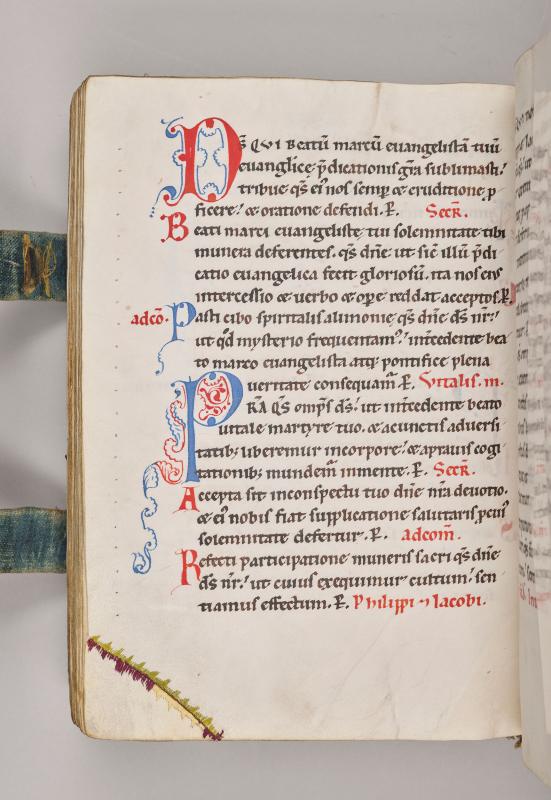 Ds̄ qVI beatū marcū euangelistā tuū
euanglice p̄dicationis gr̄a sublimasti.
tribue qs̄ ei᷒ nos semꝑ & eruditione ꝓ
ficere. & oratione defendi. P̄. Secr̄.
Beati marci euangelistę tui solemnitate tibi
munera deferentes. qs̄ dn̄e ut sic̄ illū p̄di
catio euangelica fecit gloriosū. ita nos ei᷒
intercessio & uerbo & oꝑe reddat acceptos. P̄.
adcō. Pasti cibo spiritalis alimonie qs̄ dn̄e ds̄ nr̄.
ut qd̄ mysterio frequentam᷒. int̄cedente bea
to marco euangelista atq; pontifice plena
ueritate consequam̄. P̄. Vitalis. m.
PRA qs̄ omp̄s ds̄. ut int̄cedente beato
uitale martyre tuo. & a cunctis aduersi
tatib; liberemur in corpore. & a prauis cogi
tationib; mundem̄ in mente. P̄. Secr̄.
Accepta sit in conspectu tuo dn̄e nr̄a deuotio.
& ei᷒ nobis fiat supplicatione salutaris. ꝓ cui᷒
solemnitate defertur. P̄. adcom̄.
Refecti participatione muneris sacri qs̄ dn̄e
ds̄ nr̄. ut cuius exequimur cultum. sen
tiamus effectum. P̄. Philippi ⁊ Iacobi.